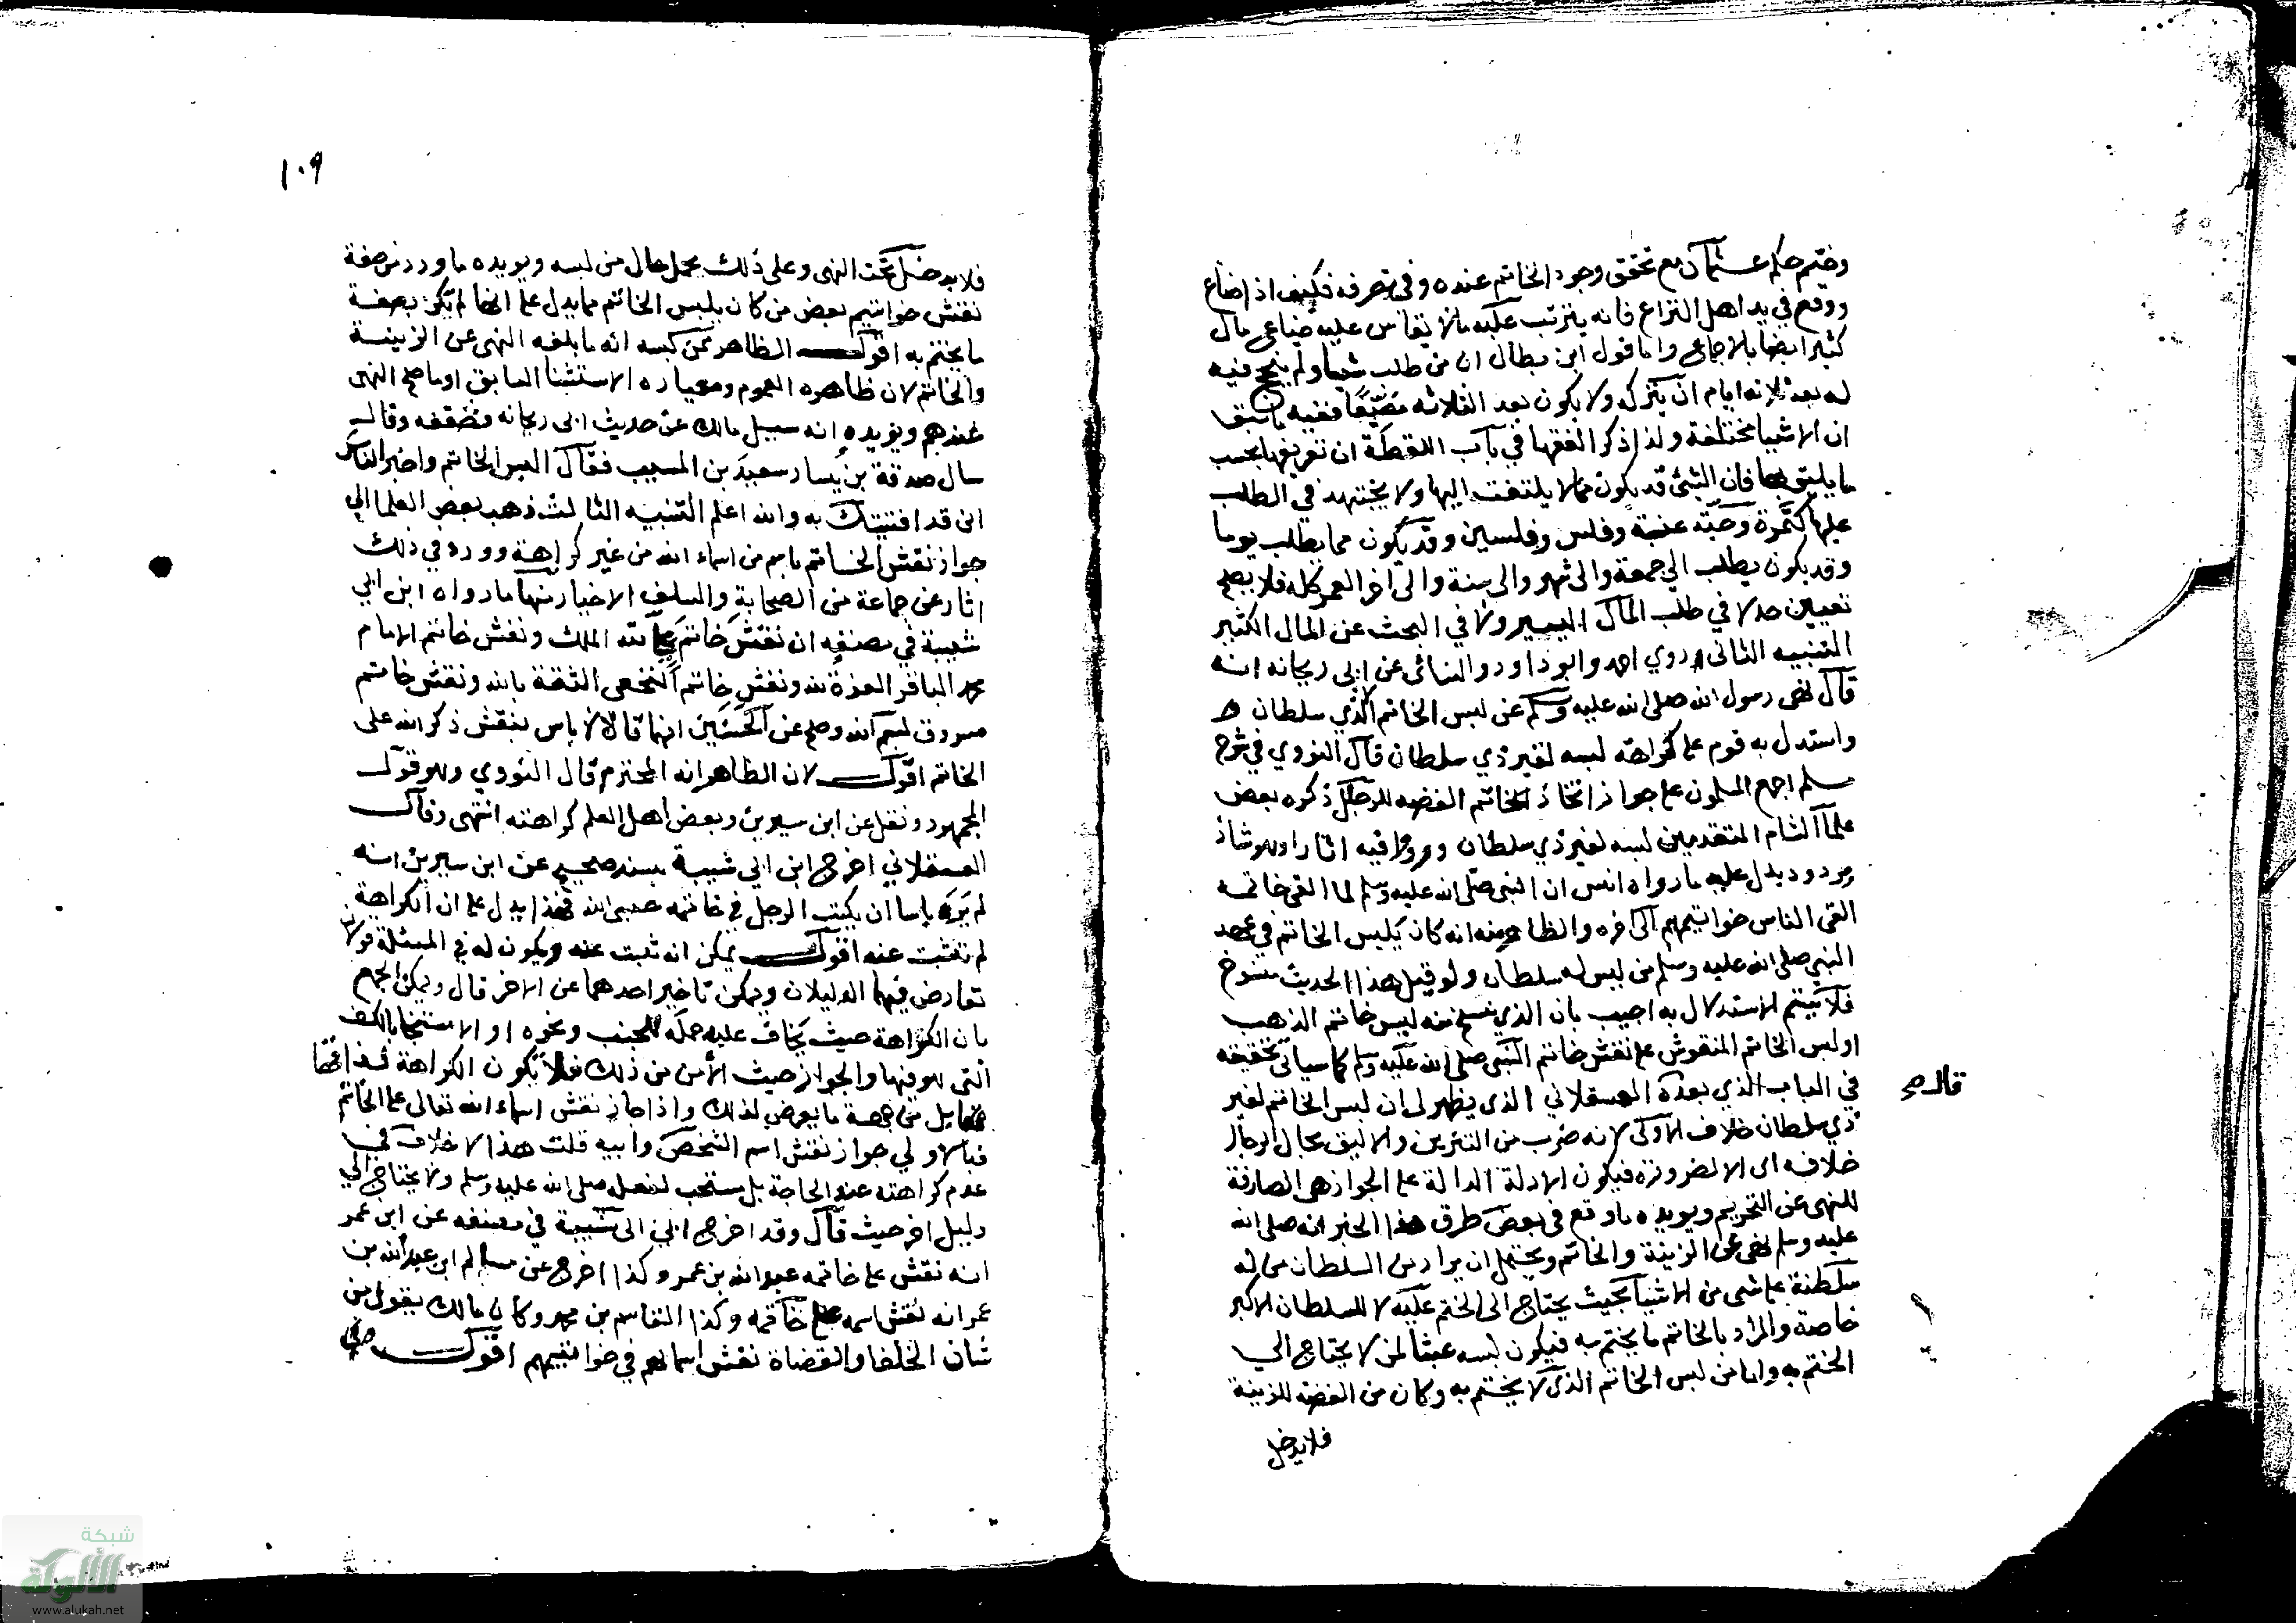 وختم حكم عثمان مع تحقق وجود الخاتم عنده وفي تصرفه فكيف اذا ضاع
ووقع في يد اهل النزاع فانه يترتب عليه ما لا يقاس عليه ضياع مال
كثير ايضا بالاجماع واما قول ابن بطال ان من طلب شيا ولم ينجح فيه
له بعد ثلاثة ايام ان يتركه ولا يكون بعد الثلاثة مضيعا ففيه ما سبق
ان الاشيا مختلفة ولذا ذكر الفقها في باب اللقطة ان تعريفها بحسب
ما يليق بها فان الشئ قد يكون مما لا يلتفت اليها ولا يجتهد في الطلب
عليها كتمرة وحبة عنبة وفلس وفلسين وقد يكون مما يطلب يوما
وقد يكون يطلب الي جمعة والى شهر والى سنة والى اخر العمر كله فلا يصلح
تعيين حد لا في طلب المال اليسير ولا في البحث عن المال الكثير
التنبيه الثاني روي احمد وابو داود والنسائى عن ابي ريحانه انه
قال نهى رسول الله صلى الله عليه وسلم عن لبس الخاتم الا لذي سلطان
واستدل به قوم على كراهة لبسه لغير ذي سلطان قال النووي في شرح
مسلم اجمع المسلمون على جواز اتخاذ الخاتم الفضه للرجال ذكره بعض
علمآ الشام المتقدمين لبسه لغير ذي سلطان ورووا فيه اثارا وهو شاذ
مردود يدل عليه ما رواه انس ان النبي صلى الله عليه وسلم لما القى خاتمه
القى الناس خواتيمهم الى اخره والظاهر منه انه كان يلبس الخاتم في عهد
النبي صلى الله عليه وسلم من ليس له سلطان ولو قيل هذا الحديث منسوخ
فلا يتم الاستدلال به اجيب بان الذي نسخ منه لبس خاتم الذهب
او لبس الخاتم المنقوش على نقش خاتم النبي صلى الله عليه وسلم كما سيأتى تحقيقه
في الباب الذي بعده العسقلاني الذى يظهر لى ان لبس الخاتم لغير
قال صح
ذي سلطان خلاف الاولى لانه ضرب من التزين والاليق بحال الرجال
خلافه اى الا لضرورة فيكون الادلة الدالة على الجواز هي الصارفة
للنهى عن التحريم ويويده ما وقع فى بعض طرق هذا الخبر انه صلى الله
عليه وسلم نهى عن الزينة والخاتم ويحتمل ان يراد من السلطان من له
سلطنة على شى من الاشيا بحيث يحتاج الى الختم عليه لا السلطان الاكبر
خاصة والمراد بالخاتم ما يختم به فيكون لبسه عبثا لمن لا يحتاج الي
الختم به واما من لبس الخاتم الذي لا يختم به وكان من الفضة للزينة
فلا يدخل
١٠٩
فلا يدخل تحت النهى وعلى ذلك يحمل حال من لبسه ويويده ما ورد من صفة
نقش خواتيم بعض من كان يلبس الخاتم مما يدل على انها لم تكن بصفة
ما يختم به اقول الظاهر ممن لبسه انه ما بلغه النهى عن الزينة
والخاتم لان ظاهره العموم ومعياره الاستثنا السابق او ما صح النهى
عندهم ويؤيده انه سيل مالك عن حديث ابى ريحانه فضعفه وقال
سال صدقة بن يسار سعيد بن المسيب فقال البس الخاتم واخبر الناس
انى قد افتيتك به والله اعلم التنبيه الثالث ذهب بعض العلما الي
جواز نقش الخاتم باسم من اسماء الله من غير كراهة وورد في ذلك
اثار عن جماعة من الصحابة والسلف الاخيار منها ما رواه ابن ابي
شيبة في مصنفه ان نقش خاتم على لله الملك ونقش خاتم الامام
محمد الباقر العزة لله ونقش خاتم النخعى الثقة بالله ونقش خاتم
مسروق بسم الله وصح عن الحسنين انهما قالا لا باس بنقش ذكر الله على
الخاتم اقول لان الظاهر انه المحترم قال النووي وهو قول
الجمهور ونقل عن ابن سيرين وبعض اهل العلم كراهته انتهى وقال
العسقلاني اخرج ابن ابي شيبة بسند صحيح عن ابن سيرين انه
لم ير به باسا ان يكتب الرجل في خاتمه حسبى الله فهذا يدل على ان الكراهة
لم تثبت عنه اقول يمكن انه ثبت عنه ويكون له في المسئلة قولان
تعارض فيهما الدليلان ويمكن تاخير احدهما عن الاخر قال ويمكن الجمع
بان الكراهة حيث يخاف عليه حمله للجنب ونحوه او الاستنجا بالكف
التى هو فيها والجواز حيث الأمن من ذلك فلا تكون الكراهة لذاتها
بل من جهة ما يعرض لذلك واذا جاز نقش اسماء الله تعالى على الخاتم
فبالاولي جواز نقش اسم الشخص وابيه قلت هذا لا خلاف في
عدم كراهته عند الحاجة بل مستحب لفعله صلى الله عليه وسلم ولا يحتاج الي
دليل اخر حيث قال وقد اخرج ابن ابى شيبة في مصنفه عن ابن عمر
انه نقش على خاتمه عبد الله بن عمر وكذا اخرج عن سالم ابن عبد الله بن
عمر انه نقش اسمه على خاتمه وكذا القاسم بن محمد وكان مالك يقول من
شان الخلفا والقضاة نقش اسمائهم في خواتيمهم اقول
شبكة
الألوكة
www.alukah.net